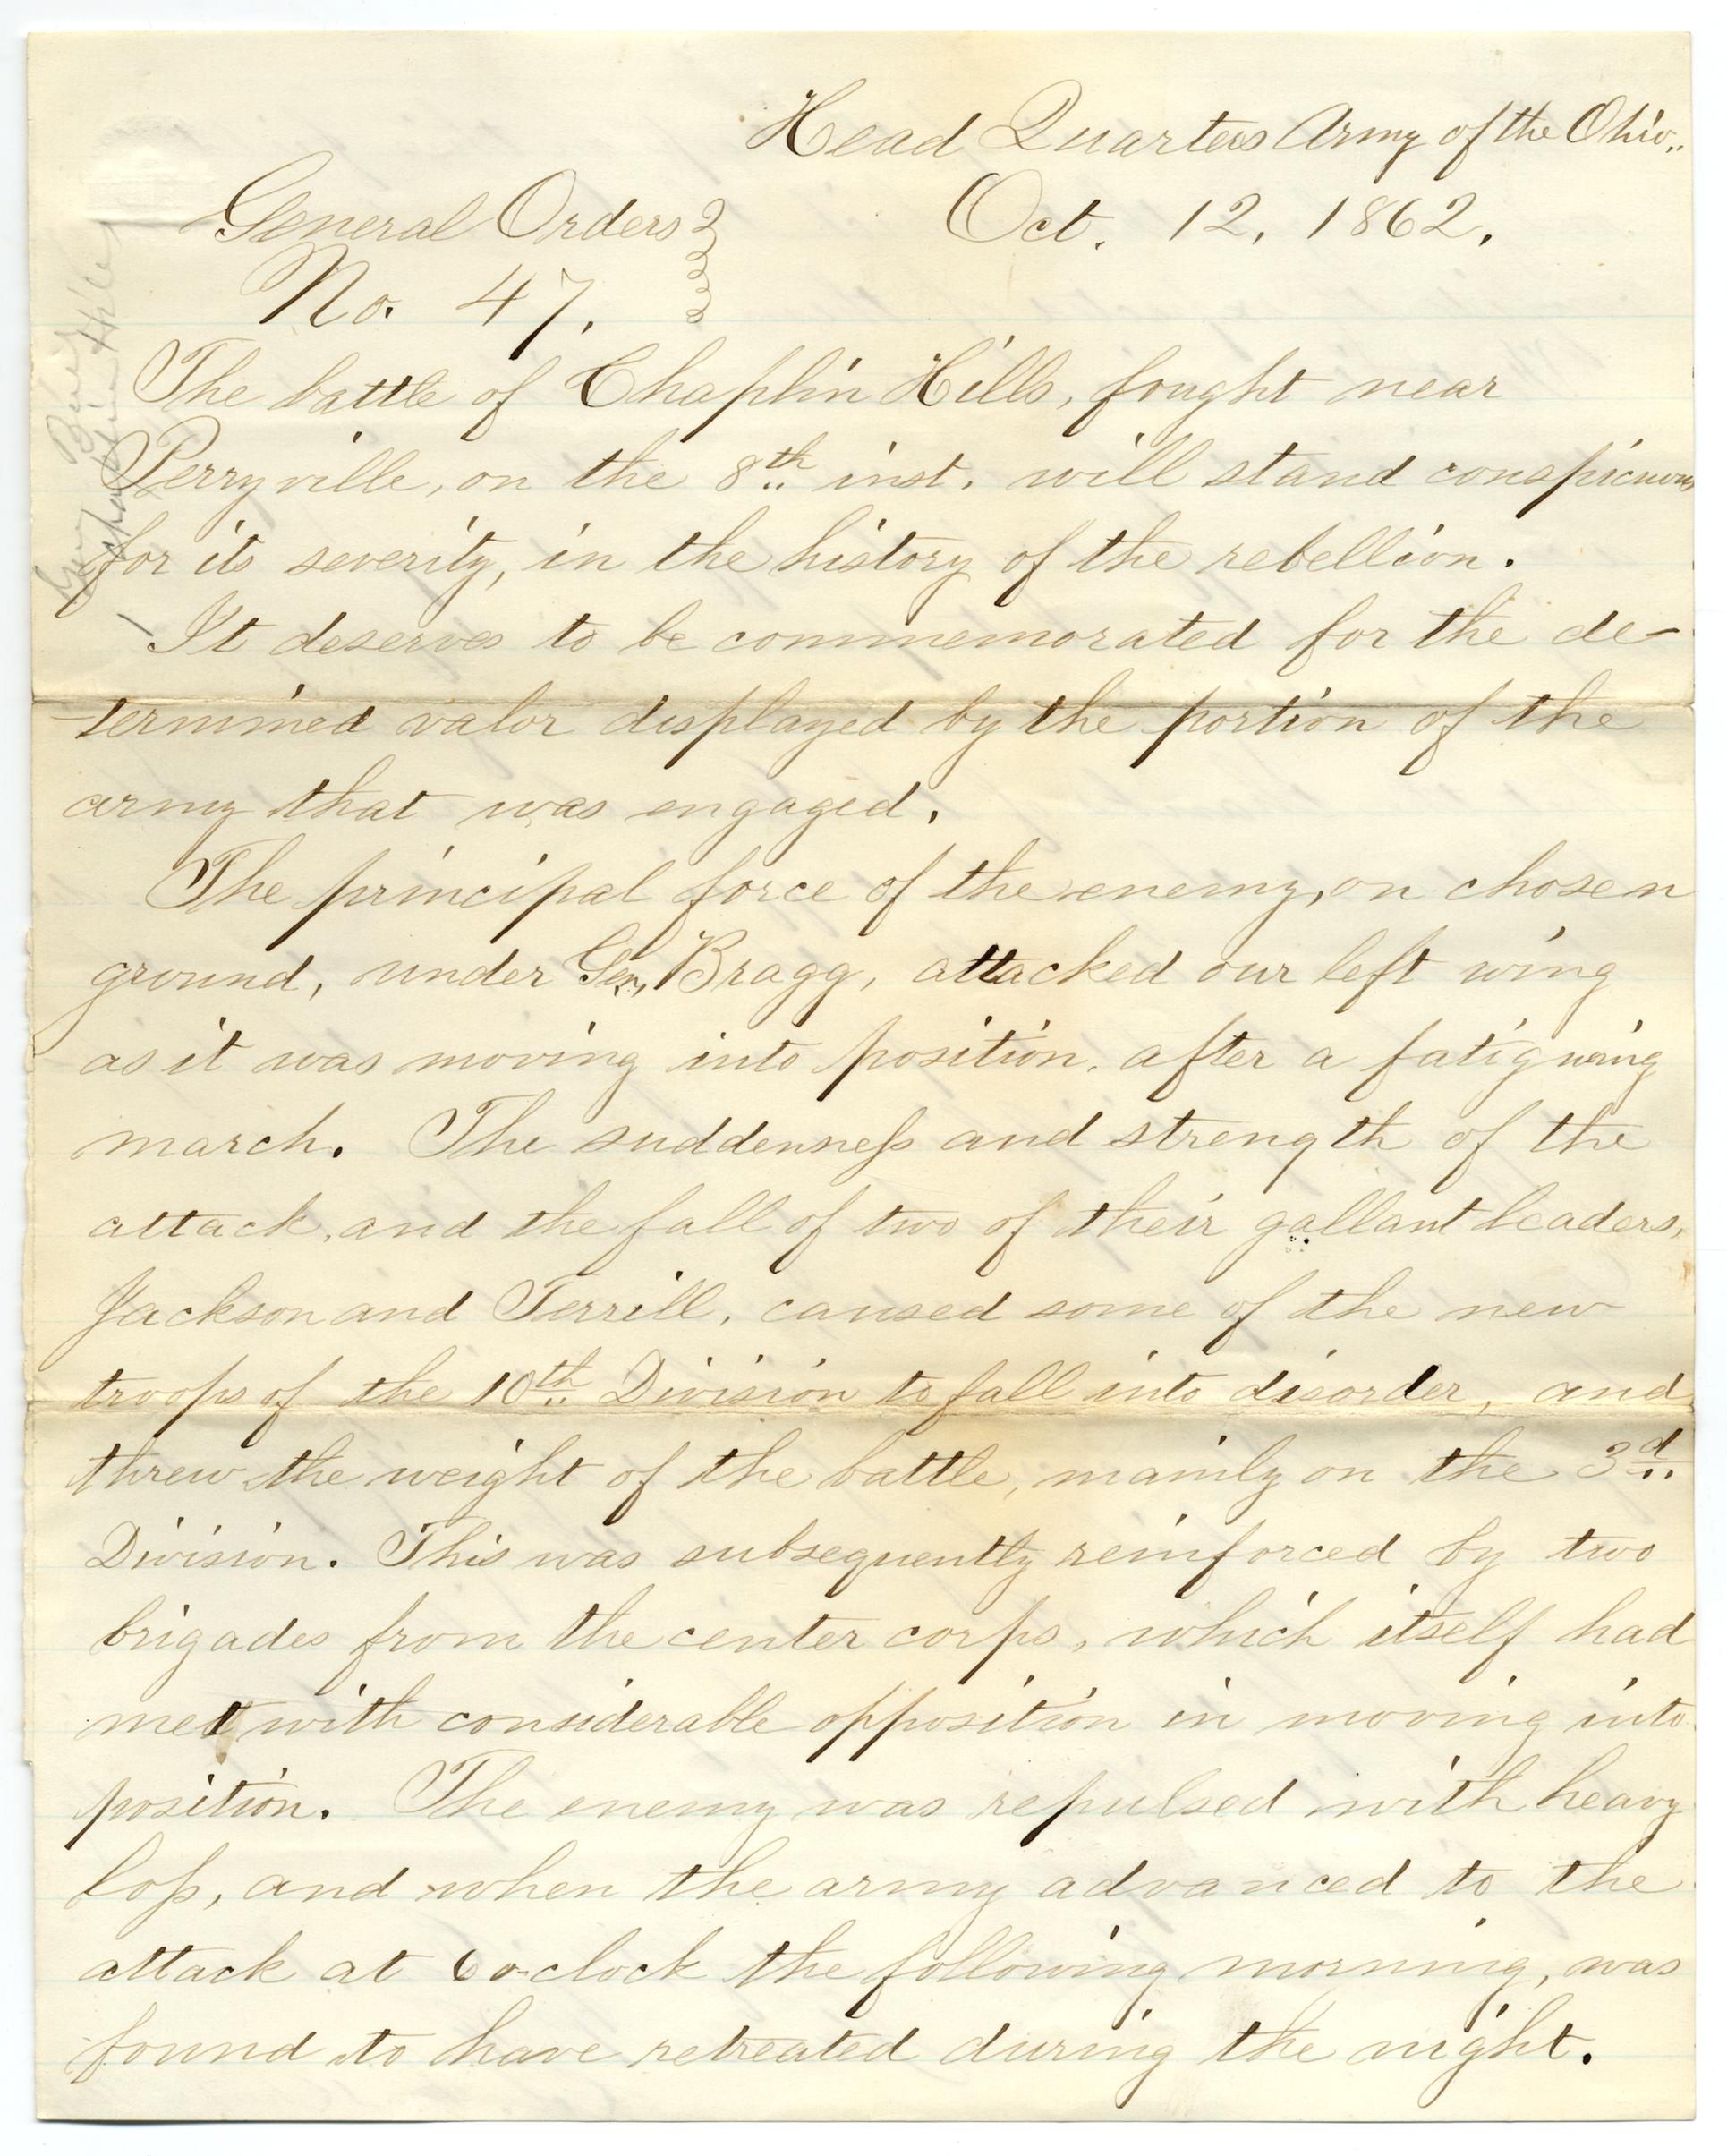 Head Quarters Army of the Ohio,
General Orders
Oct. 12, 1862.
No. 47.
The battle of Chaplin Hills, fought near
Perryville, on the 8th inst. will stand conspicuous
for its severity, in the history of the rebellion.
It deserves to be commemorated for the de-
-termined valor displayed by the portion of the
army that was engaged.
The principal force of the enemy, on chosen
ground, under Gen, Bragg, attacked our left wing
as it was moving into position, after a fatiguing
march. The suddenness and strength of the
attack, and the fall of two of their gallant leaders,
Jackson and Terrill, caused some of the new
troops of the 10th Division to fall into disorder, and
threw the weight of the battle, mainly on the 3d
Division. This was subsequently reinforced by two
brigades from the center corps, which itself had
met with considerable opposition in moving into
position. The enemy was repulsed with heavy
loss, and when the army advanced to the
attack at 6 o-clock the following morning, was
found to have retreated during the night.